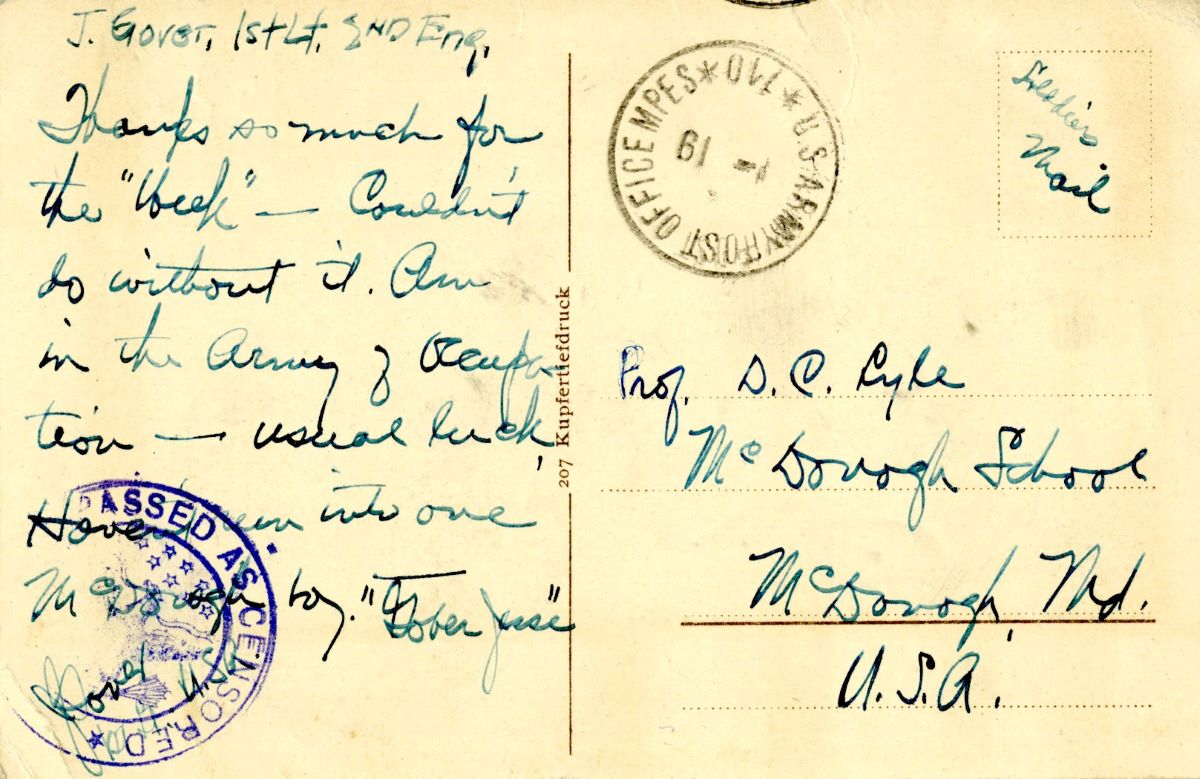 J. Gover, 1st Lt, 2ND Eng.
Thanks so much for
the "Week" — Couldn't
do without it. Am
in the Army of Occupa-
tion — usual luck,
Haven't run into one
McDonogh boy. "Gober
Gover
U.S.A.
PASSED AS CENSORED
207 Kupfertiefdruck
U.S. ARMY POST OFFICE MPES * 710 *
1 19
Soldiers
Mail
Prof. D. C. Lyle
McDonogh School
McDonogh, Md.
U.S.A.